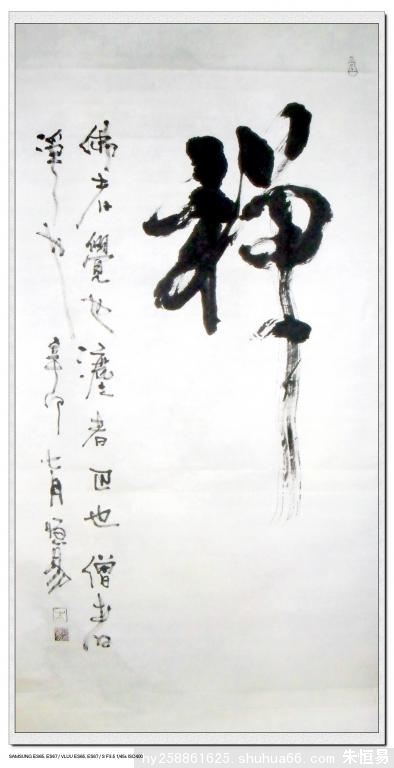 禅
佛者覺也灋者正也僧者
淨也
辛卯七月恒易
SAMSUNG ES65, ES67 / VLUU ES65, ES67 / S F3.5 1/45s ISO400
hy258861625.shuhua66.com 朱恒易